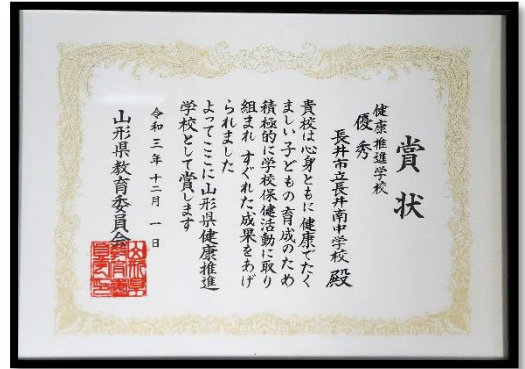 賞状
健康推進学校
優秀
長井市立長井南中学校 殿
貴校は心身ともに健康でたく
ましい子どもの育成のため
積極的に学校保健活動に取り
組まれ すぐれた成果をあげ
られました
よってここに山形県健康推進
学校として賞します
令和三年十二月一日
山形県教育委員会